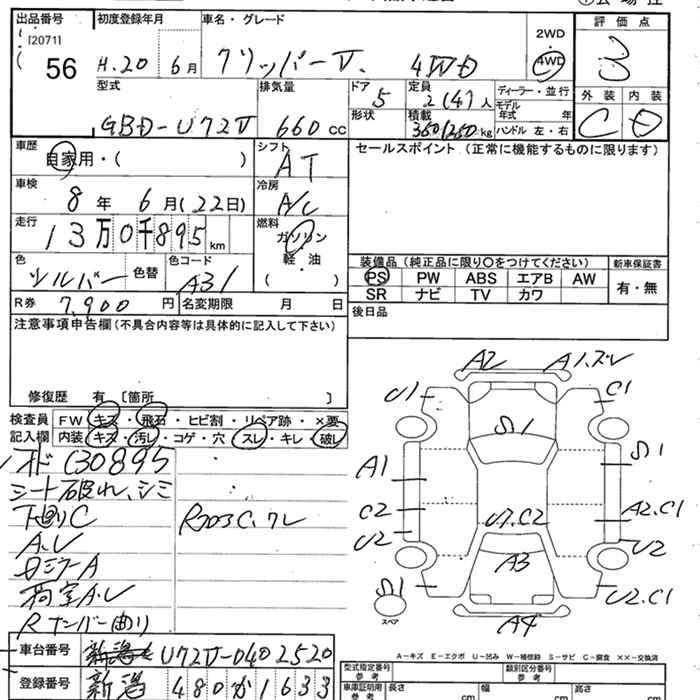 出品番号 初度登録年月 車名・グレード 2WD 評価点
[2071]
56 H.20 6月 クリッパーV. 4WD 4WD 3
型式 排気量 ドア 定員 ディーラー・並行 外装 内装
5 2(4)人 モデル年式 年
GBD-U72V 660cc 形状 積載 350(250)kg ハンドル 左・右 C D
車歴 自家用・( ) シフト AT セールスポイント (正常に機能するものに限ります)
車検 8年 6月(22日) 冷房 A/C
走行 13万0千895km 燃料 ガソリン
軽・油
( )
色 シルバー 色替 色コード A31
装備品 (純正品に限り○をつけてください) 新車保証書
PS PW ABS エアB AW 有・無
SR ナビ TV カワ
R券 7,900円 名変期限 月 日 後日品
注意事項申告欄(不具合内容等は具体的に記入して下さい)
修復歴 有 [箇所 ]
検査員 FW キズ・飛石・ヒビ割・リペア跡・×要
記入欄 内装 キズ・汚レ・コゲ・穴・スレ・キレ・破レ
130895
シート破れ、シミ
下廻りC R703C.クレ
A.U
ミラーA
荷室A.U
Rナンバー曲り
A2 A1.ズレ
U1 C1
A1
C2 U7.C2 A2.C1
U2 U2
A3
スペア U2.C1
A4
A-キズ E-エクボ U-凹み W-補修跡 S-サビ C-腐食 ××-交換済
車台番号 U72V-0402520
登録番号 新潟 480か1633
型式指定番号 参考 類別区分番号 参考
車庫証明用 参考 長さ cm 幅 cm 高さ cm